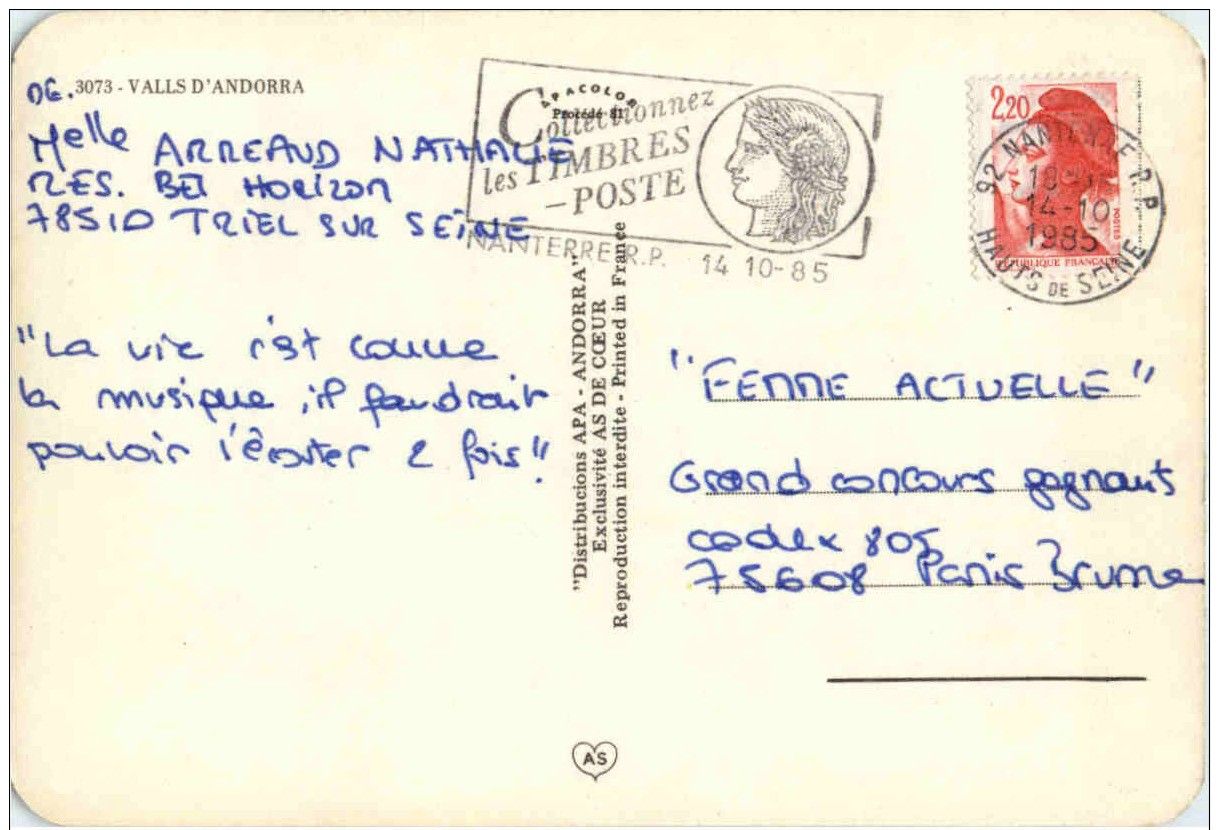 DE. 3073 - VALLS D'ANDORRA
Melle ARREAUD NATHALIE
RES. BEL HORIZON
78510 TRIEL SUR SEINE
APACOLOR
Procédé 81
Collectionnez
les TIMBRES
-POSTE
NANTERRE R.P. 14 10-85
2,20
POSTES
REPUBLIQUE FRANÇAISE
92 NANTERRE R.P.
14-10
1985
HAUTS DE SEINE
"La vie c'est comme
la musique, il faudrait
pouvoir l'écouter 2 fois"
"Distribucions APA - ANDORRA"
Exclusivité AS DE CŒUR
Reproduction interdite - Printed in France
"FEMME ACTUELLE"
Grand concours gagnants
codex 805
75608 Paris Brune
AS